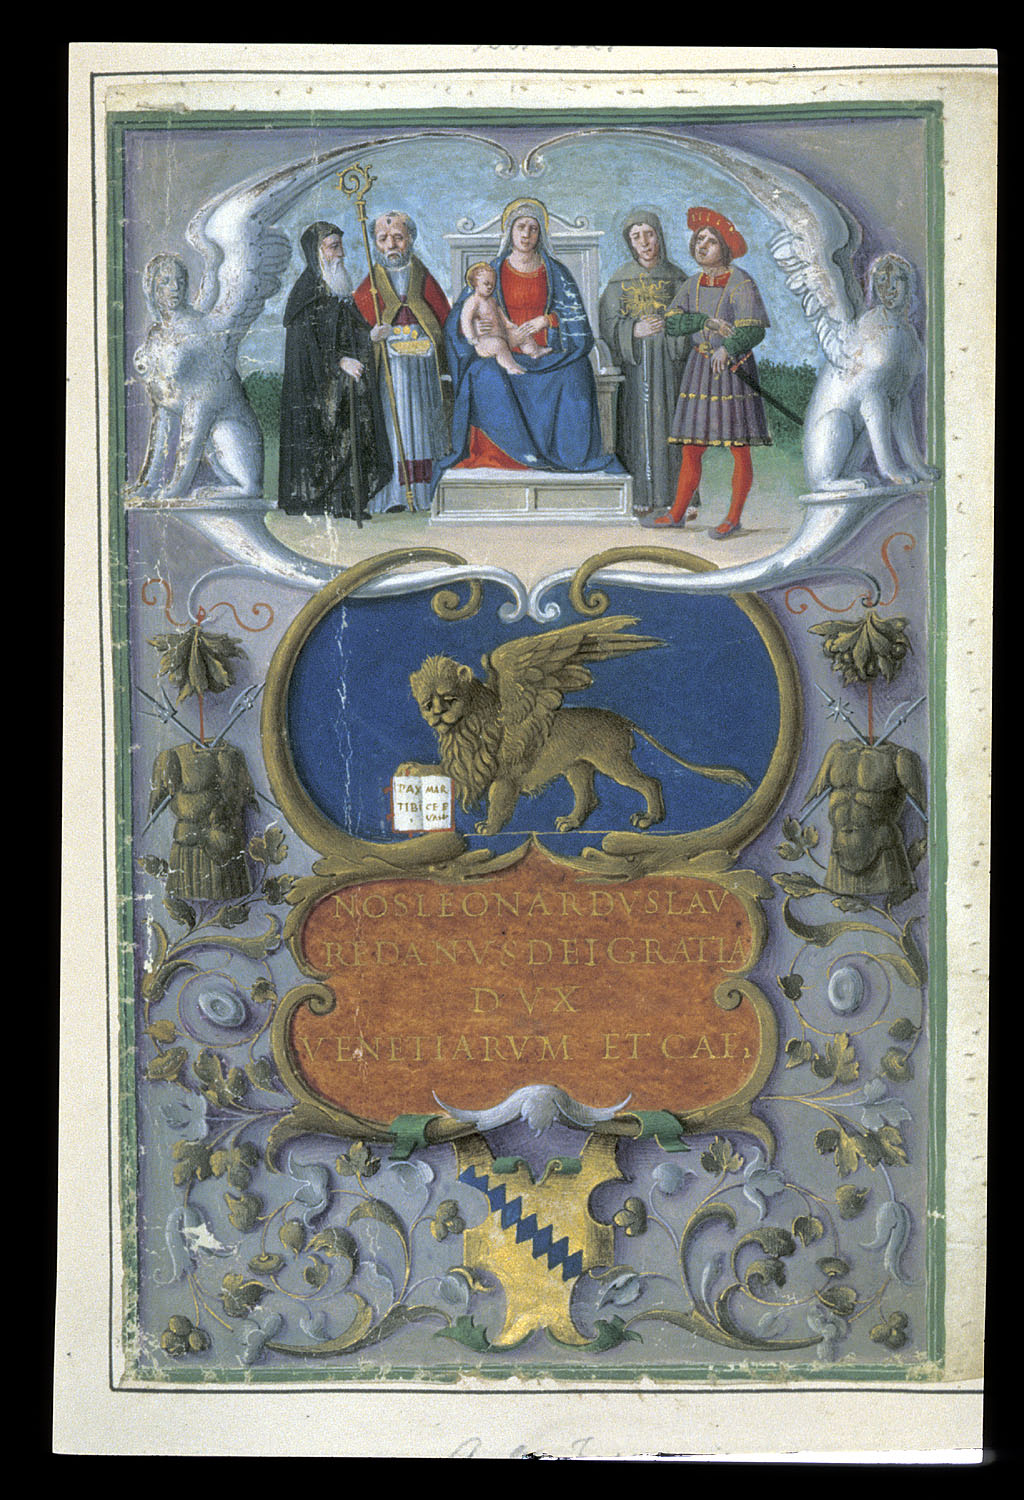 PAX MAR
TIBI CE E
NOS LEONARDVS LAV
REDANVS DEI GRATIA
DVX
VENETIARVM ET CAE,